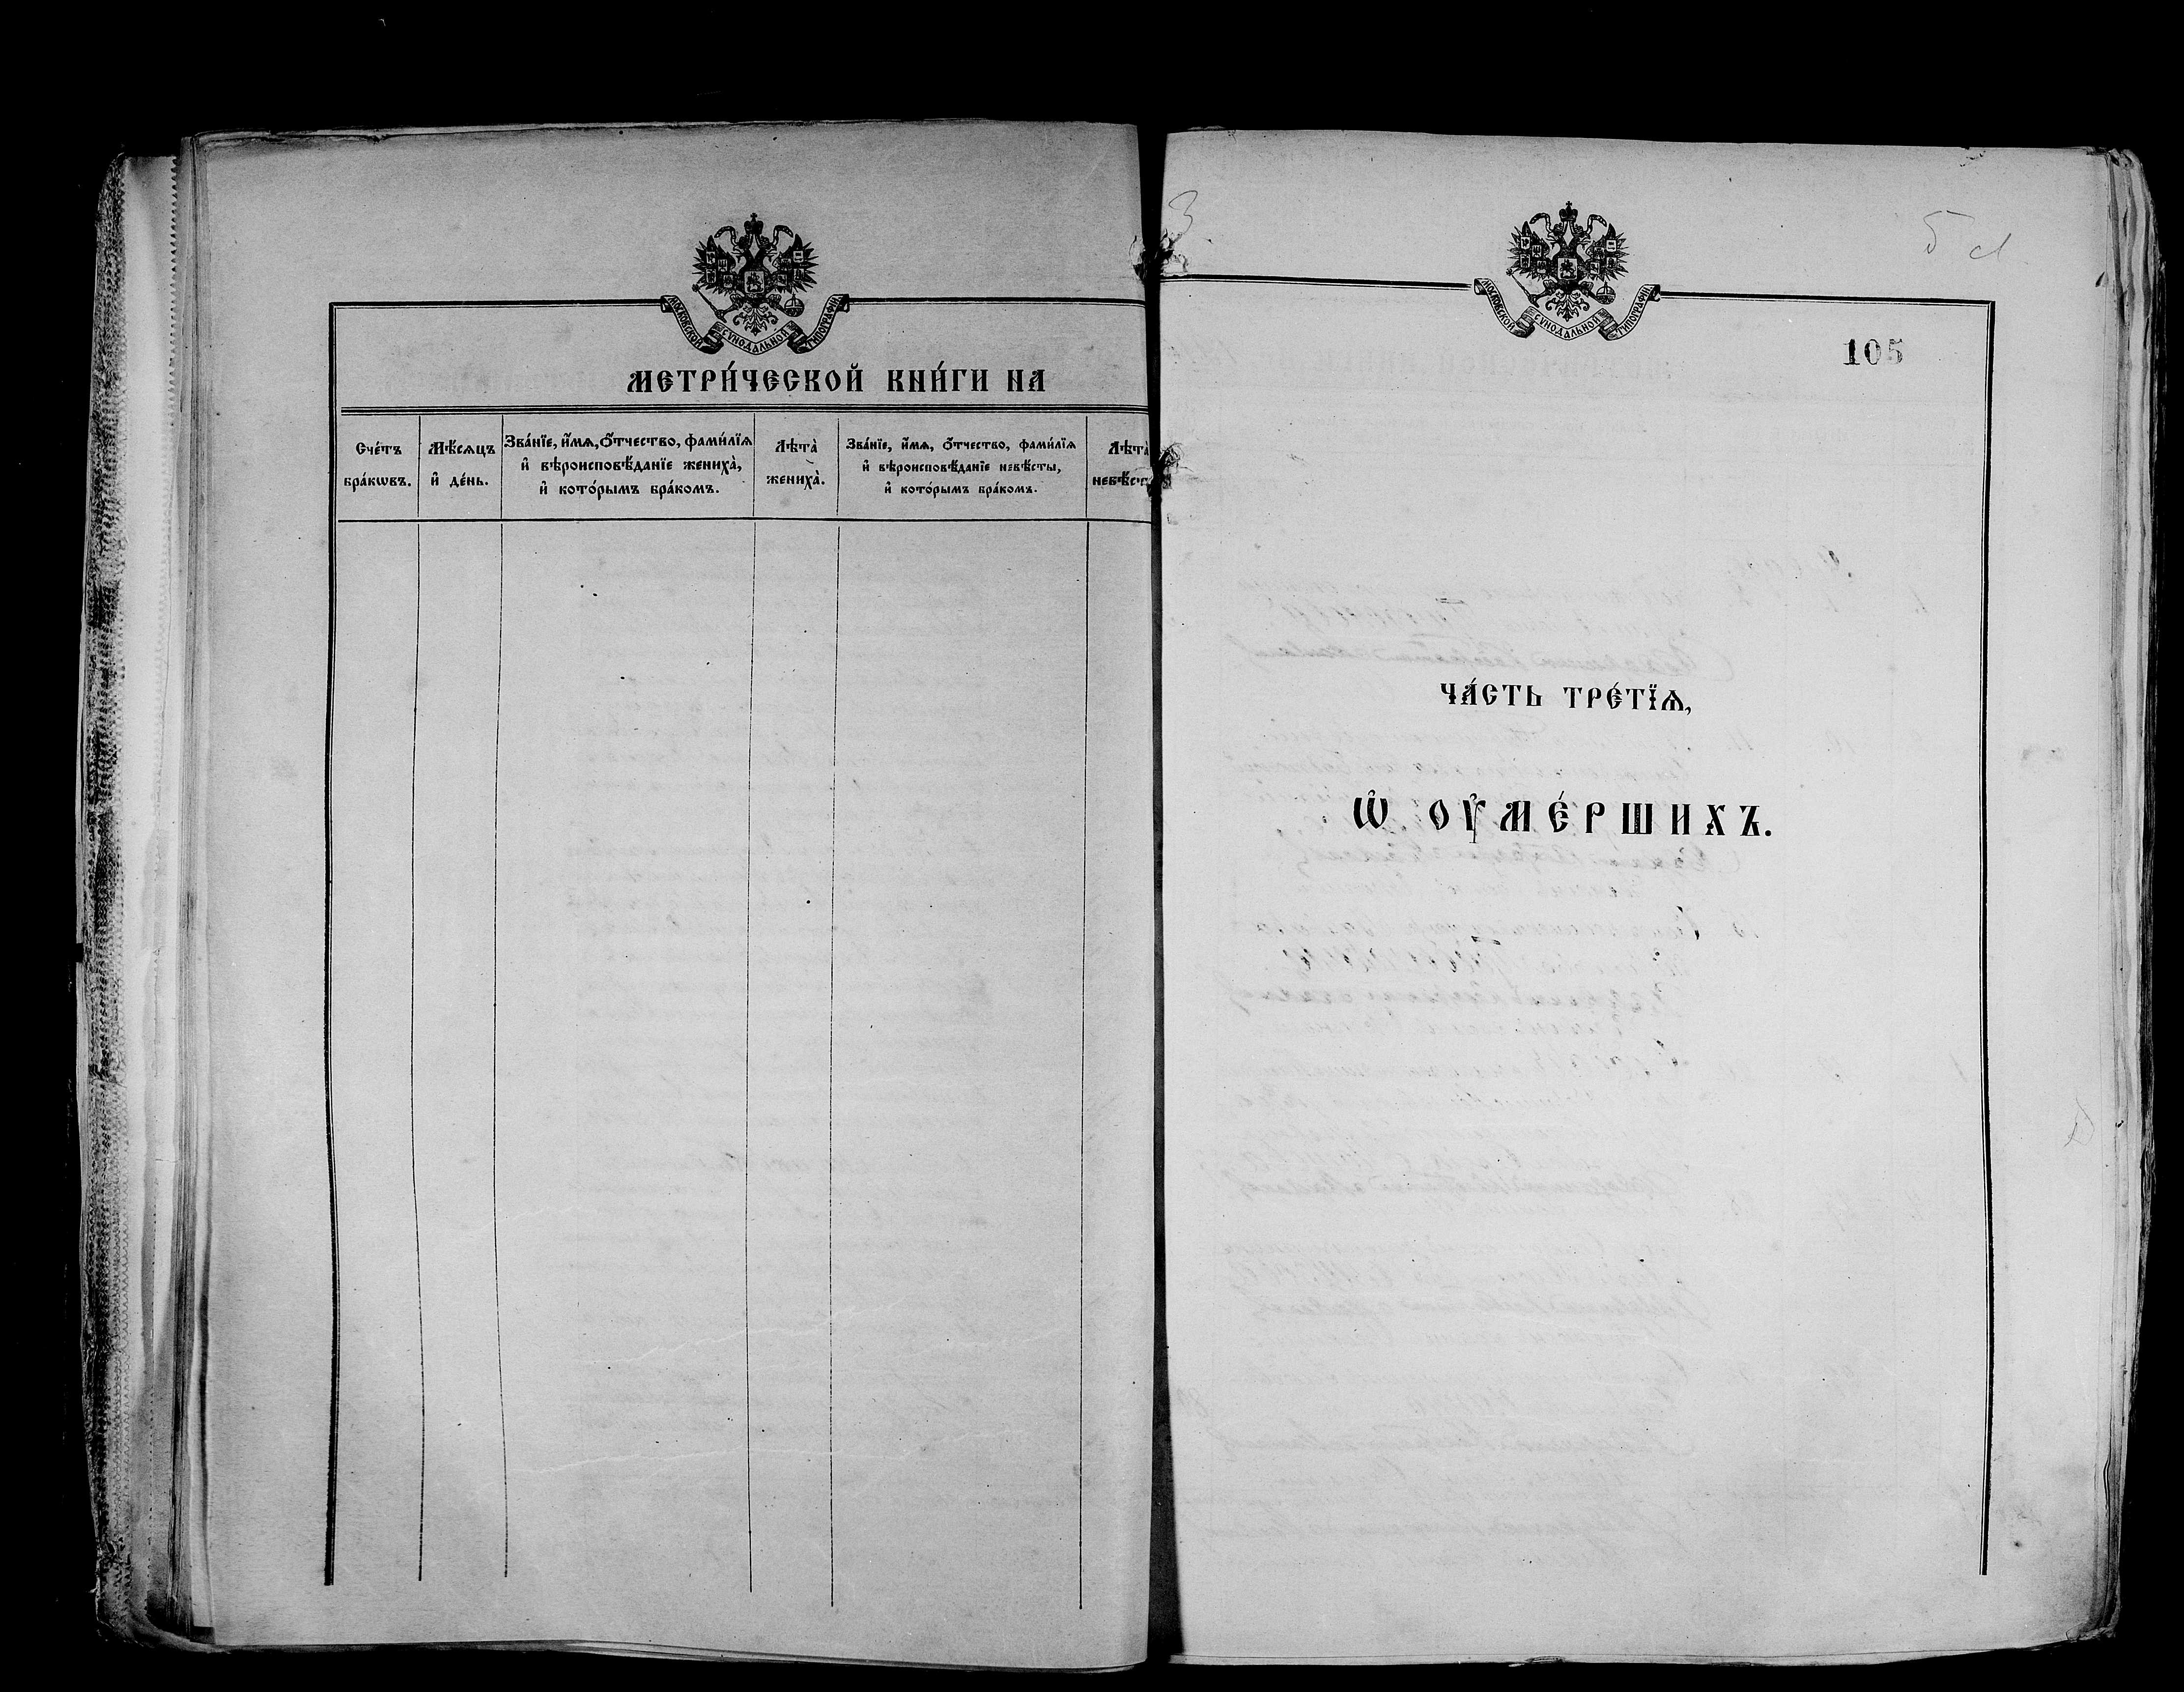 МОСКОВСКОЙ СѴНОДАЛЬНОЙ ТИПОГРАФІИ
МЕТРИ́ЧЕСКОЙ КНИ́ГИ НА
Сче́тъ
бра́кѡвъ.
Мѣ́сѧцъ
и҆ де́нь.
Зва́нїе, и҆́мѧ, ѻ҆́тчество, фами́лїѧ
и҆ вѣроисповѣ́данїе жениха̀,
и҆ кото́рымъ бра́комъ.
Лѣта̀
жениха̀.
Зва́нїе, и҆́мѧ, ѻ҆́тчество, фами́лїѧ
и҆ вѣроисповѣ́данїе невѣ́сты,
и҆ кото́рымъ бра́комъ.
Лѣта̀
невѣ́ст
3
МОСКОВСКОЙ СѴНОДАЛЬНОЙ ТИПОГРАФІИ
105
ЧА́СТЬ ТРЕ́ТЇѦ,
Ѡ҆ ОУ҆МЕ́РШИХЪ.